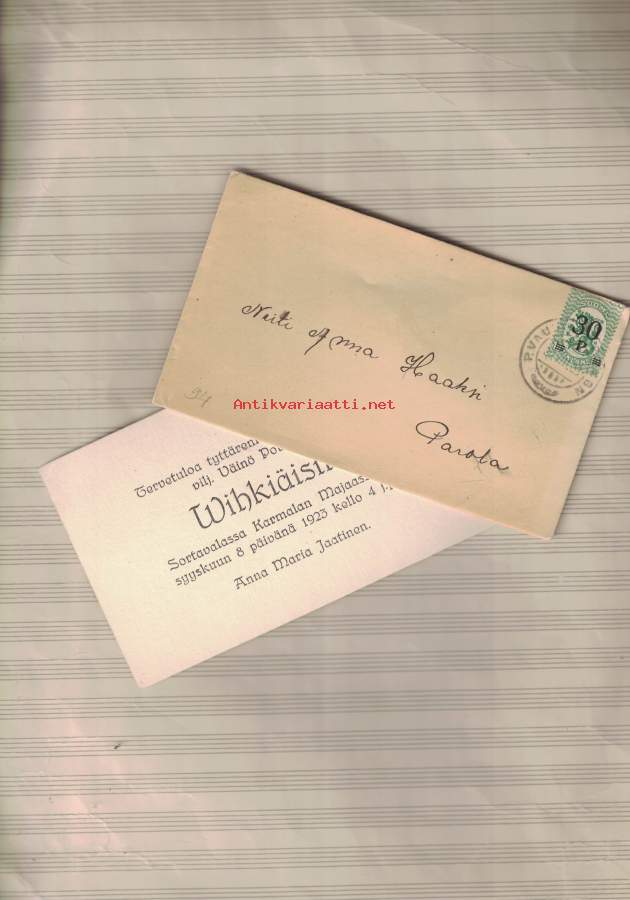 Neiti Anna Haaksi
Parola
30
P.
P.VAU
941
Antikvariaatti.net
Tervetuloa tyttäreni
vilj. Väinö Po
Wihkiäisi
Sortavalassa Karmalan Majaas
syyskuun 8 päivänä 1923 kello 4 j.
Anna Maria Jaatinen.